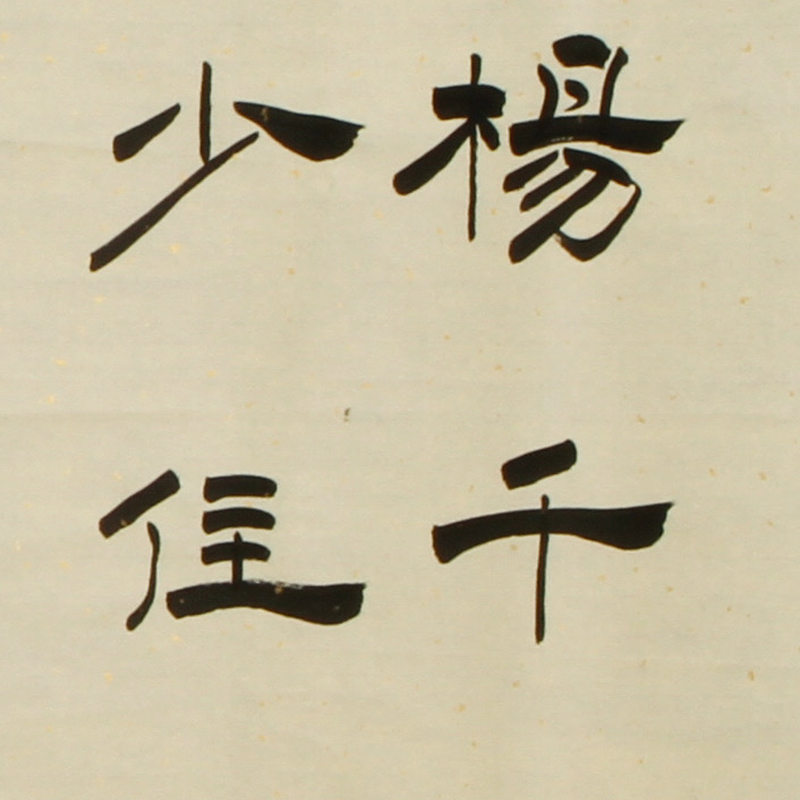 楊千
少住